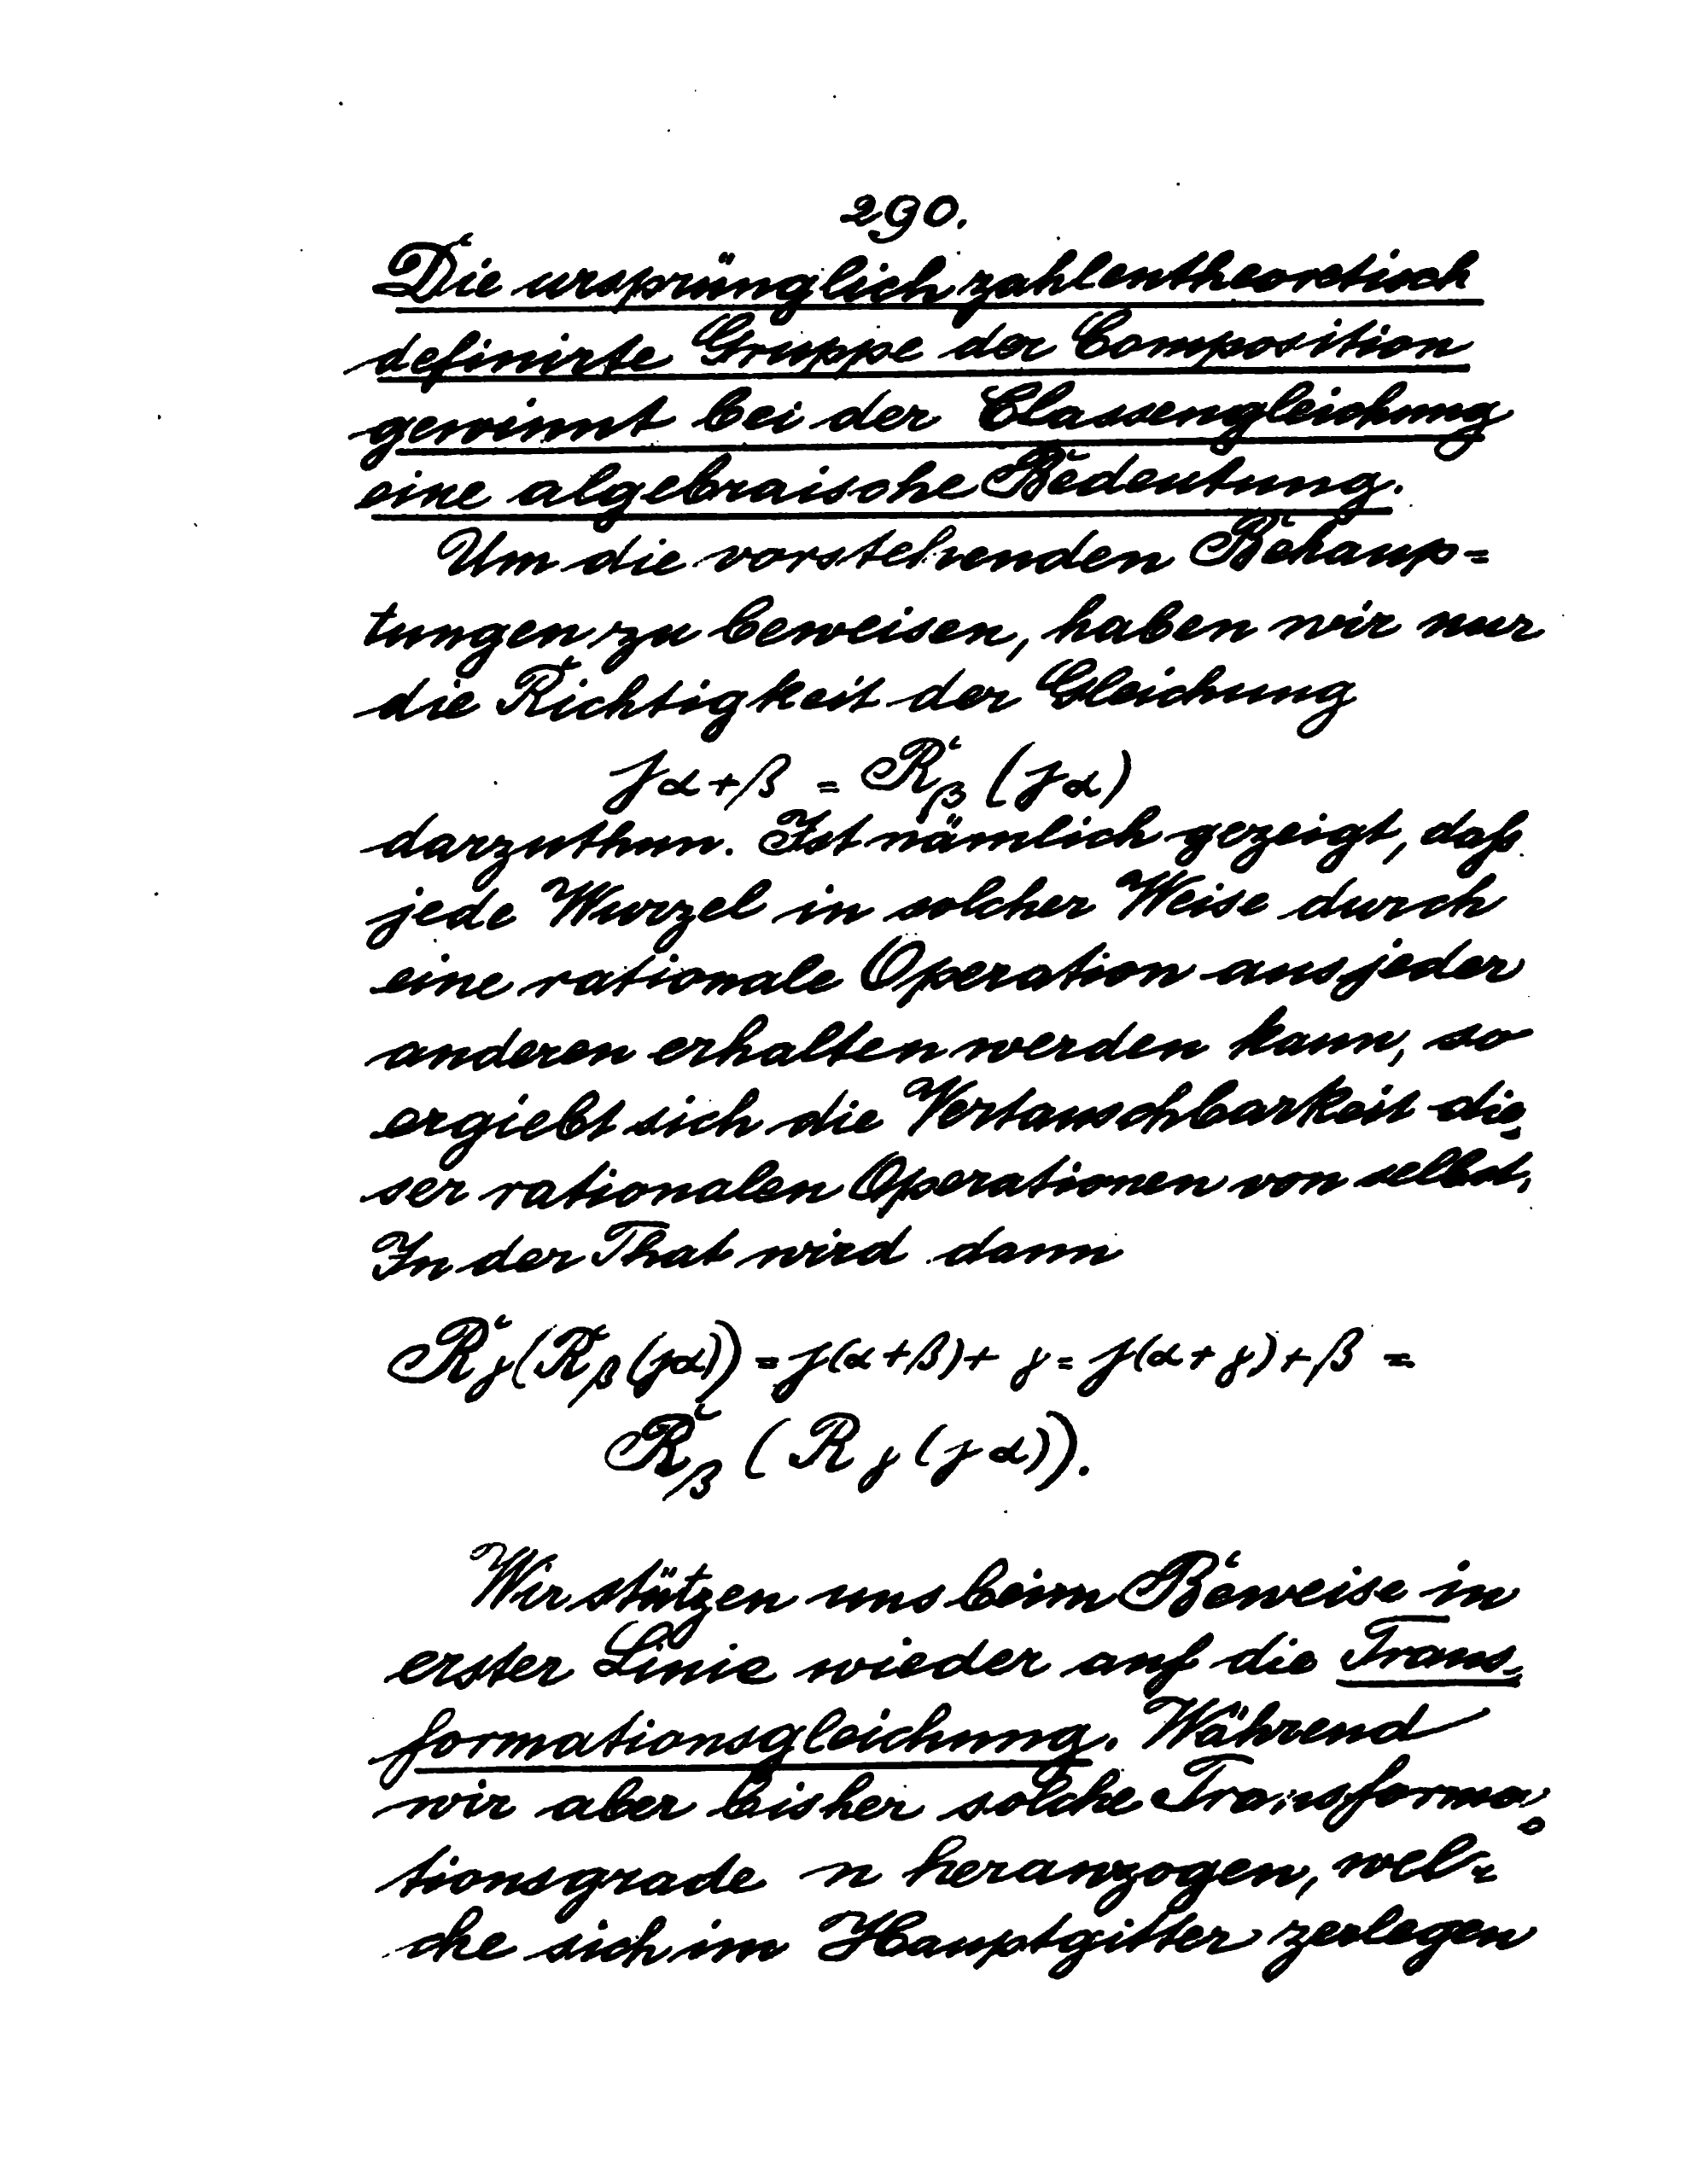 290.
Die ursprünglich zahlentheoretisch
definirte Gruppe der Composition
gewinnt bei der Classengleichung
eine algebraische Bedeutung.
Um die vorstehenden Behaup=
tungen zu beweisen, haben wir nur
die Richtigkeit der Gleichung
jα+β = Rβ (jα)
darzuthun. Ist nämlich gezeigt, daß
jede Wurzel in solcher Weise durch
eine rationale Operation aus jeder
anderen erhalten werden kann, so
ergiebt sich die Vertauschbarkeit die=
ser rationalen Operationen von selbst.
In der That wird dann
Rγ(Rβ(jα)) = j(α+β)+γ = j(α+γ)+β =
Rβ (Rγ (jα)).
Wir stützen uns beim Beweise in
erster Linie wieder auf die Trans=
formationsgleichung. Während
wir aber bisher solche Transforma=
tionsgrade n heranzogen, wel=
che sich im Hauptgitter zerlegen